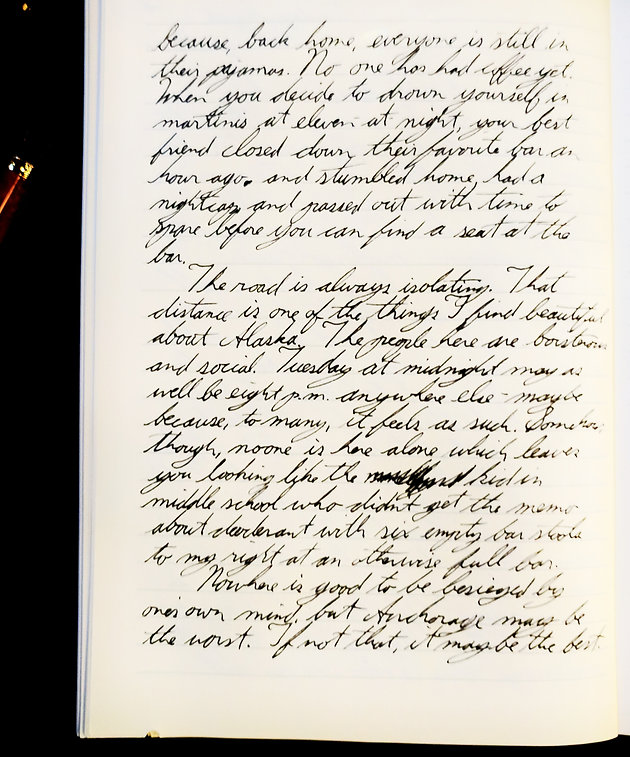 because, back home, everyone is still in
their pajamas. No one has had coffee yet.
When you decide to drown yourself in
martinis at eleven at night, your best
friend closed down their favorite bar an
hour ago, and stumbled home, had a
nightcap, and passed out with time to
spare before you can find a seat at the
bar.
The road is always isolating. That
distance is one of the things I find beautiful
about Alaska. The people here are boisterous
and social. Tuesday at midnight may as
well be eight p.m. anywhere else - maybe
because, to many, it feels as such. Somehow
though, no one is here alone which leaves
you looking like the kid in
middle school who didn't get the memo
about deoderant with six empty bar stools
to my right at an otherwise full bar.
Nowhere is good to be besieged by
one's own mind, but Anchorage may be
the worst. If not that, it may be the best.